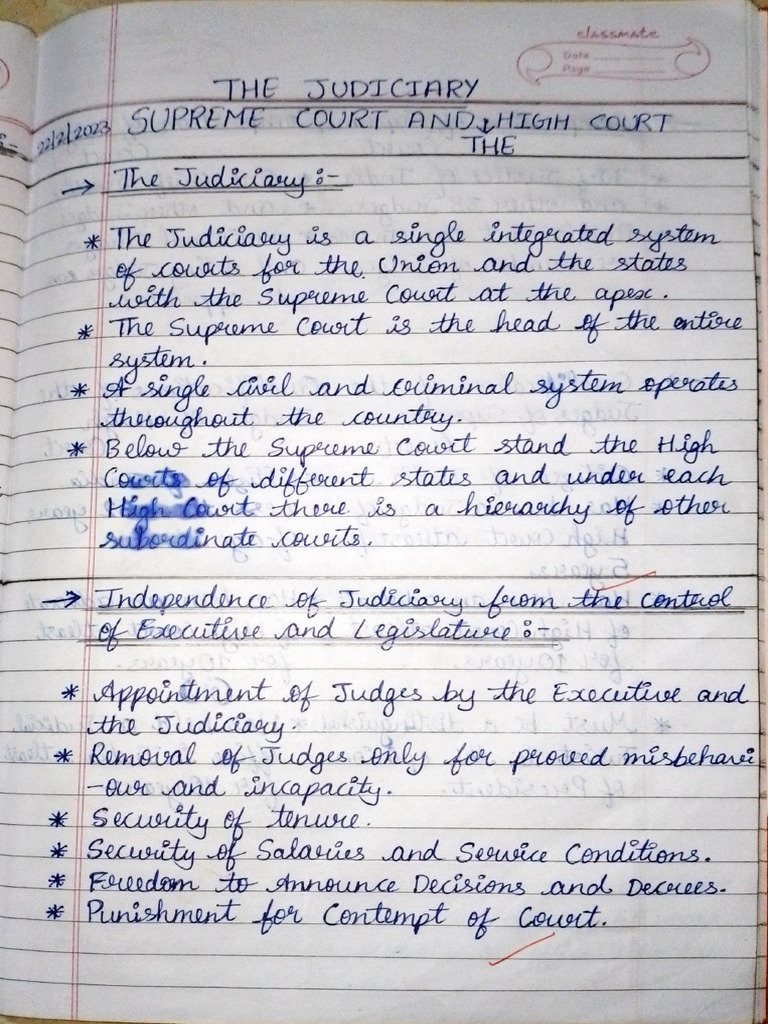 classmate
Date
Page
THE JUDICIARY
22/2/2023 SUPREME COURT AND HIGH COURT
THE
→ The Judiciary :-
* The Judiciary is a single integrated system
of courts for the Union and the states
with the Supreme Court at the apex.
* The Supreme Court is the head of the entire
system.
* A single civil and criminal system operates
throughout the country.
* Below the Supreme Court stand the High
Courts of different states and under each
High Court there is a hierarchy of other
subordinate courts.
→ Independence of Judiciary from the control
of Executive and Legislature :-
* Appointment of Judges by the Executive and
the Judiciary.
* Removal of Judges only for proved misbehavi
-our and incapacity.
* Security of tenure.
* Security of Salaries and Service Conditions.
* Freedom to Announce Decisions and Decrees.
* Punishment for Contempt of Court.